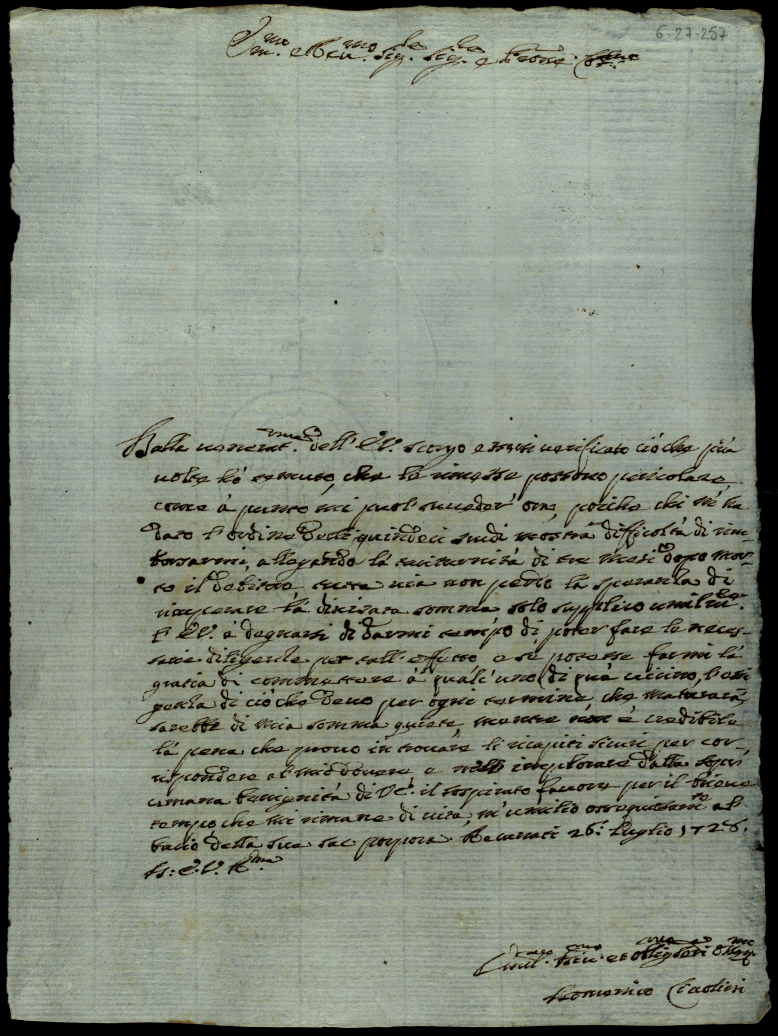 6-27-257
Em.mo e Rev.mo Sig. Sig. e Prone Col.mo
Dalla venerat.ma dell' E.V. scorgo essersi verificato ciò che più
volte hò temuto, che le rimesse possono pericolare,
come à punto mi puol succeder' ora, poiche chi m' hà
dato l' ordine delli quindeci scudi mostra difficoltà di rim-
borsarmi, allegando la taciturnità di tre mesi dopo mor-
to il debitore, tutta via non perdo la speranza di
ricuperare la divisata somma solo supplico umilm.te
l' E.V. à degnarsi di darmi tempo di poter fare le neces-
sarie diligenze per tall' effetto, e se potesse farmi la
gratia di commettere à qualc' uno di quà vicino, l' esi-
genza di ciò che devo per ogni termine, che maturarà,
sarebbe di mia somma quiete, mentre non è credibile
la pena che provo in trovare li ricapiti sicuri per cor-
rispondere al mio dovere, e nell' implorare dalla
umana benignità di V.E. il sospirato favore per il breve
tempo che mi rimane di vita, m' umilio ossequiosam.te al
bacio della sua sac. porpora Recanati 26. Luglio 1726.
D: E.V. R.ma
Umil.mo Dev.mo et Oblig.mo
Domenico